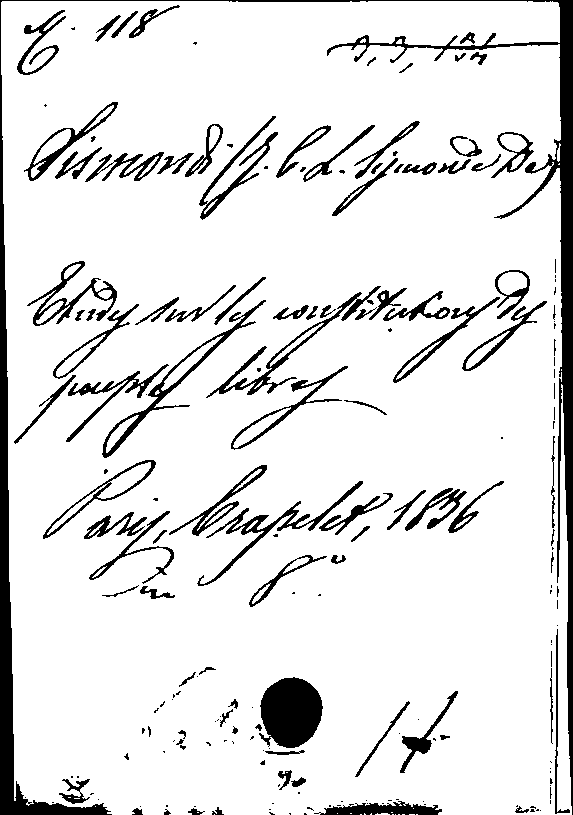 E. 118
Sismondi (J. C. L. Symonde De)
Etudes sur les constitutions des
peuples libres
Paris, Crapelet, 1836
In 8°